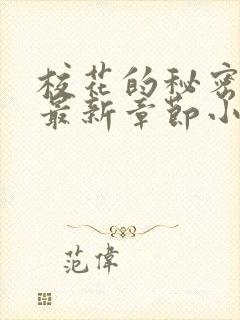 校花的秘密
最新章節小
范偉